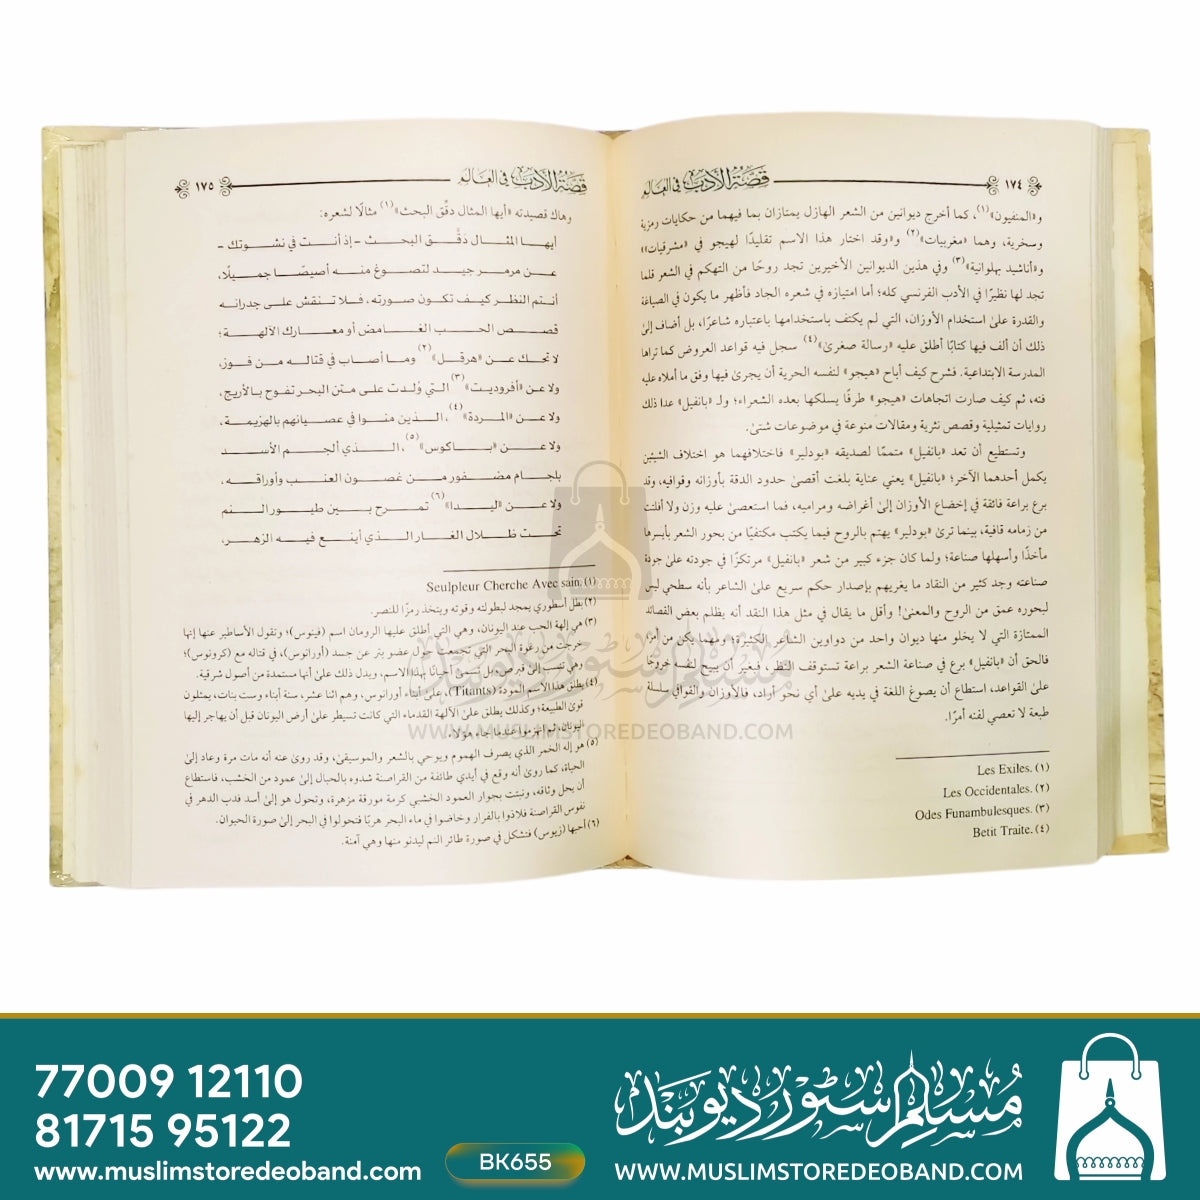 ١٧٤
قصة الأدب في العالم
و«المنفيون»(١)، كما أخرج ديوانين من الشعر الهازل يمتازان بما فيهما من حكايات رمزية
وسخرية، وهما «مغربيات»(٢) و«وقد اختار هذا الاسم تقليدًا لهيجو في «مشرقيات»»
و«أناشيد بهلوانية»(٣) وفي هذين الديوانين الأخيرين تجد روحًا من التهكم في الشعر قلما
تجد لها نظيرًا في الأدب الفرنسي كله؛ أما امتيازه في شعره الجاد فأظهر ما يكون في الصياغة
والقدرة على استخدام الأوزان، التي لم يكتف باستخدامها باعتباره شاعرًا، بل أضاف إلى
ذلك أن ألف فيها كتابًا أطلق عليه «رسالة صغرى»(٤) سجل فيه قواعد العروض كما تراها
المدرسة الابتداعية. فشرح كيف أباح «هيجو» لنفسه الحرية أن يجرى فيها وفق ما أملاه عليه
فنه، ثم كيف صارت اتجاهات «هيجو» طرقًا يسلكها بعده الشعراء؛ ولـ «بانفيل» عدا ذلك
روايات تمثيلية وقصص نثرية ومقالات منوعة في موضوعات شتى.
وتستطيع أن تعد «بانفيل» متممًا لصديقه «بودلير» فاختلافهما هو اختلاف الشيئين
يكمل أحدهما الآخر؛ «بانفيل» يعني عناية بلغت أقصى حدود الدقة بأوزانه وقوافيه، وقد
برع براعة فائقة في إخضاع الأوزان إلى أغراضه ومراميه، فما استعصى عليه وزن ولا أفلتت
من زمامه قافية، بينما ترى «بودلير» يهتم بالروح فيما يكتب مكتفيًا من بحور الشعر بأيسرها
مأخذًا وأسهلها صناعة؛ ولما كان جزء كبير من شعر «بانفيل» مرتكزًا في جودته على جودة
صناعته وجد كثير من النقاد ما يغريهم بإصدار حكم سريع على الشاعر بأنه سطحي ليس
لبحوره عمق من الروح والمعنى! وأقل ما يقال في مثل هذا النقد أنه يظلم بعض القصائد
الممتازة التي لا يخلو منها ديوان واحد من دواوين الشاعر الكثيرة؛ ومهما يكن من أمر
فالحق أن «بانفيل» برع في صناعة الشعر براعة تستوقف النظر، فبغير أن يبيح لنفسه خروجًا
على القواعد، استطاع أن يصوغ اللغة في يديه على أي نحو أراد، فالأوزان والقوافي سلسلة
طيعة لا تعصي لفنه أمرًا.
(١) Les Exiles.
(٢) Les Occidentales.
(٣) Odes Funambulesques.
(٤) Betit Traite.
قصة الأدب في العالم
١٧٥
وهاك قصيدته «أيها المثال دقِّق البحث»(١) مثالًا لشعره:
أيها المثال دَقِّق البحث - إذ أنت في نشوتك -
عن مرمر جيد لتصوغ منه أصيصًا جميلًا،
أنتم النظر كيف تكون صورته، فلا تنقش على جدرانه
قصص الحب الغامض أو معارك الآلهة؛
لا تحك عن «هرقل»(٢) وما أصاب في قتاله من فوز،
ولا عن «أفروديت»(٣) التي وُلدت على متن البحر تفوح بالأريج،
ولا عن «المردة»(٤)، الذين منوا في عصيانهم بالهزيمة،
ولا عن «باكوس»(٥)، الذي ألجم الأسد
بلجام مضفور من غصون العنب وأوراقه،
ولا عن «ليدا»(٦) تمرح بين طيور التم
تحت ظلال الغار الذي أينع فيه الزهر،
(١) Seulpleur Cherche Avec sain.
(٢) بطل أسطوري يمجد لبطولته وقوته ويتخذ رمزًا للنصر.
(٣) هي إلهة الحب عند اليونان، وهي التي أطلق عليها الرومان اسم (فينوس)؛ وتقول الأساطير عنها إنها
خرجت من رغوة البحر التي تجمعت حول عضو بتر عن جسد (أورانوس)، في قتاله مع (كرونوس)؛
وهي تنسب إلى قبرص، بل تسمى أحيانًا بهذا الاسم، ويدل ذلك على أنها مستمدة من أصول شرقية.
(٤) يطلق هذا الاسم المردة (Titants)، على أبناء أورانوس، وهم اثنا عشر، ستة أبناء وست بنات، يمثلون
قوى الطبيعة؛ وكذلك يطلق على الآلهة القدماء التي كانت تسيطر على أرض اليونان قبل أن يهاجر إليها
اليونان، ثم انهزموا عندما جاء هؤلاء.
(٥) هو إله الخمر الذي يصرف الهموم ويوحي بالشعر والموسيقى، وقد روى عنه أنه مات مرة وعاد إلى
الحياة، كما روى أنه وقع في أيدي طائفة من القراصنة شدوه بالحبال إلى عمود من الخشب، فاستطاع
أن يحل وثاقه، ونبتت بجوار العمود الخشبي كرمة مورقة مزهرة، وتحول هو إلى أسد فدب الذعر في
نفوس القراصنة فلاذوا بالفرار وخاضوا في ماء البحر هربًا فتحولوا في البحر إلى صورة الحيوان.
(٦) أحبها (زيوس) فتشكل في صورة طائر التم ليدنو منها وهي آمنة.
مسلم سٹور دیوبند
WWW.MUSLIMSTOREDEOBAND.COM
77009 12110
81715 95122
www.muslimstoredeoband.com
BK655
مسلم سٹور دیوبند
WWW.MUSLIMSTOREDEOBAND.COM